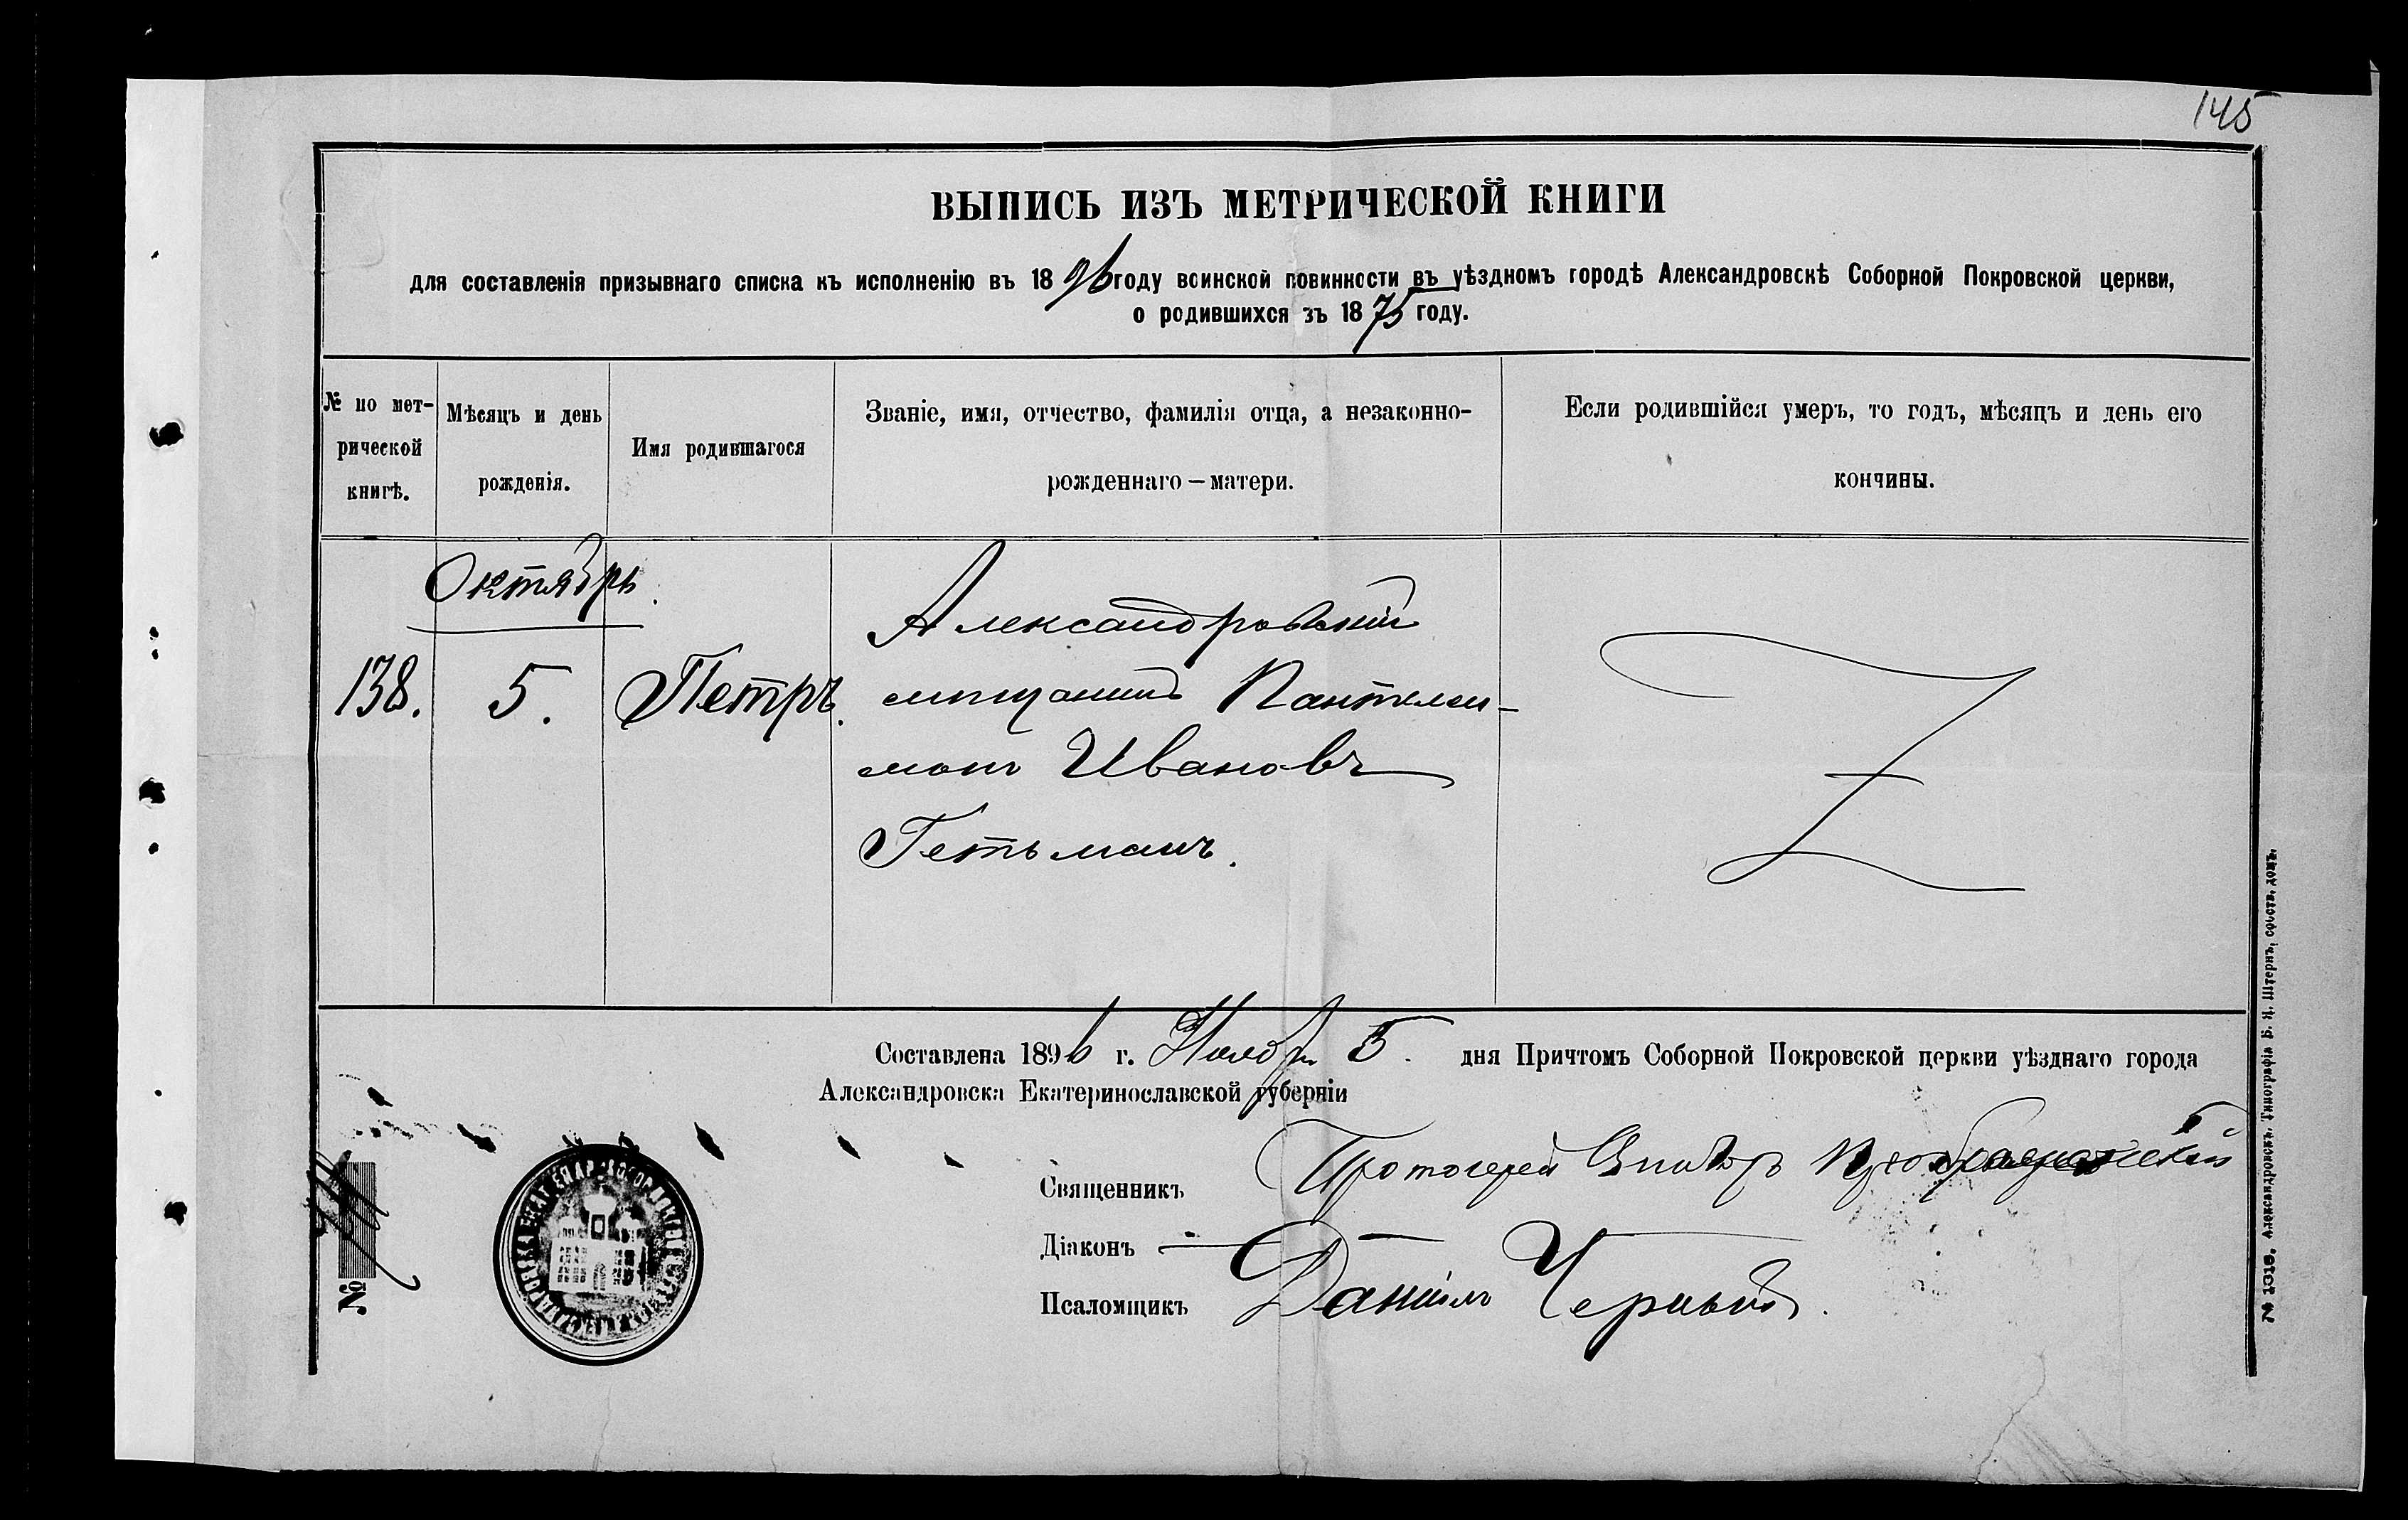 145
ВЫПИСЬ ИЗЪ МЕТРИЧЕСКОЙ КНИГИ
для составленія призывнаго списка къ исполненію въ 1896 году воинской повинности въ уѣздномъ городѣ Александровскѣ Соборной Покровской церкви,
о родившихся въ 1875 году.
№ по мет-
рической
книгѣ.
Мѣсяцъ и день
рожденія.
Имя родившагося
Званіе, имя, отчество, фамилія отца, а незаконно-
рожденнаго — матери.
Если родившійся умеръ, то годъ, мѣсяцъ и день его
кончины.
Октябрь.
138. 5. Петръ.
Александровскій
мѣщанинъ Пантелеи-
монъ Ивановъ
Гетьманъ.
Составлена 1896 г. Ноября 5. дня Причтомъ Соборной Покровской церкви уѣзднаго города
Александровска Екатеринославской губерніи
Священникъ Протоіерей Викторъ
Діаконъ —
Псаломщикъ Даніилъ Черный.
№
№ 1319. Александровскъ. Типографія Б. Я. Штернъ, собств. домъ.